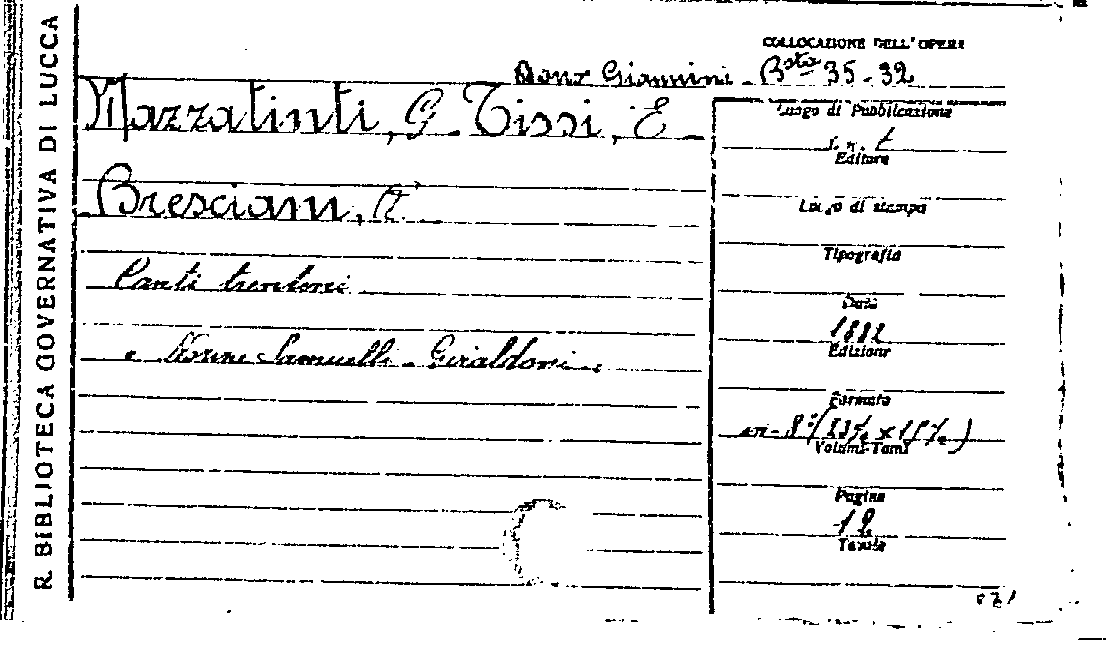 R. BIBLIOTECA GOVERNATIVA DI LUCCA
COLLOCAZIONE DELL'OPERA
Dono Giannini - Bsta 35-32
Mazzatinti, G. Tissi, E.
Bresciani, R.
Canti trentini
Nozze Samuelli - Giraldoni
Luogo di Pubblicazione
s. n. t.
Editore
Luogo di stampa
Tipografia
Data
1882
Edizione
Formato
in-8°
Volumi-Tomi
Pagine
12
Tavole